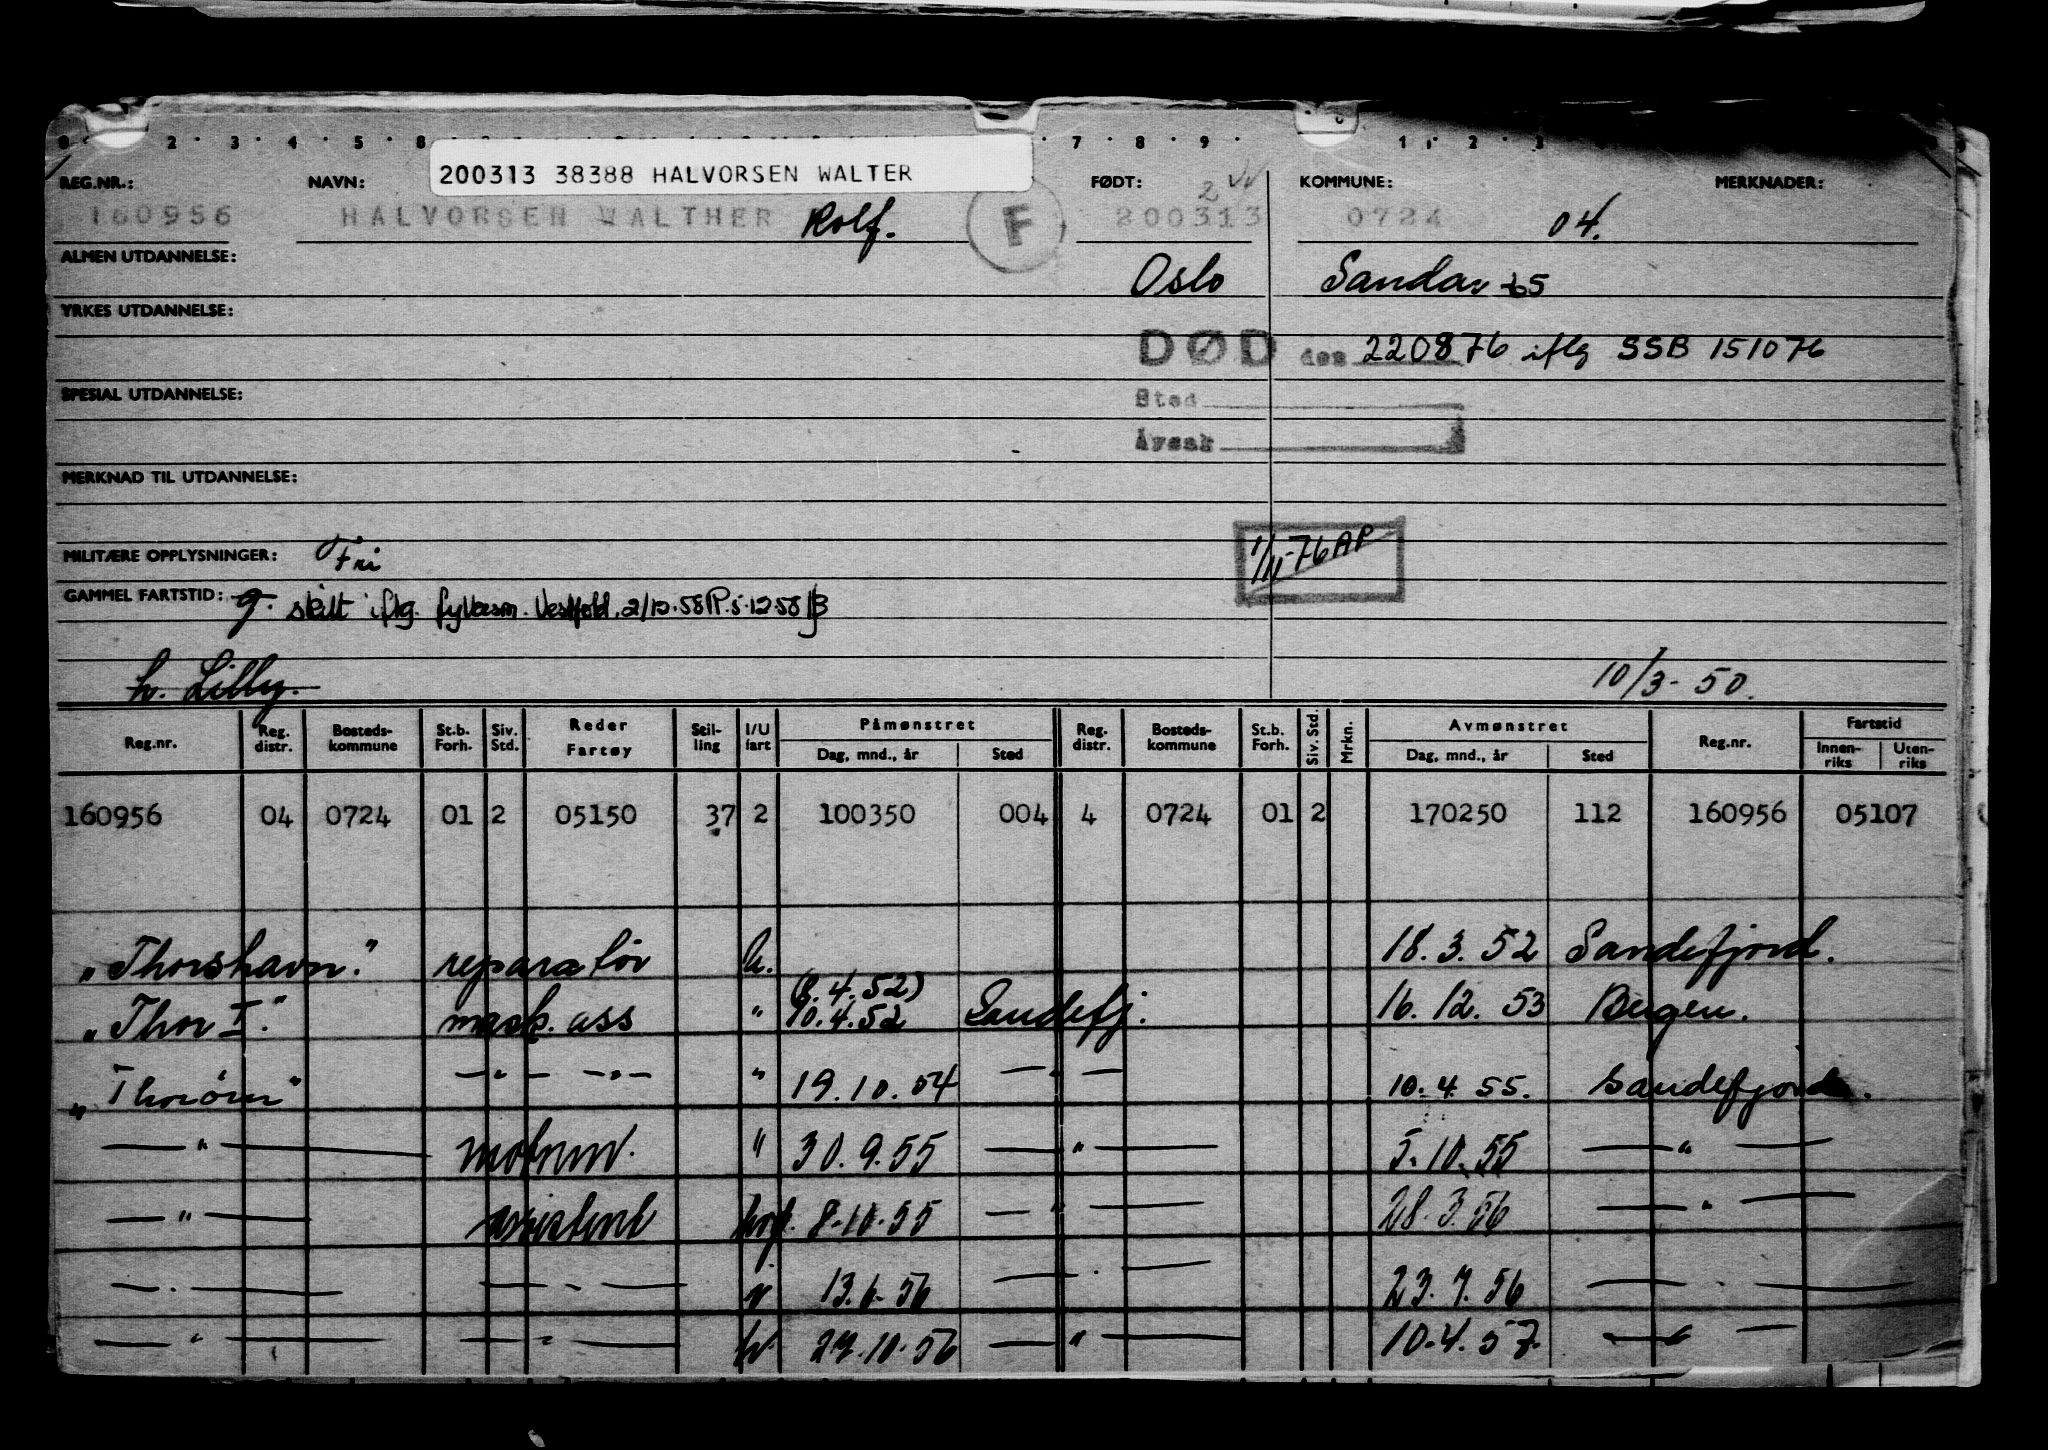 200313 38388 HALVORSEN WALTER
REG.NR.: NAVN: FØDT: KOMMUNE: MERKNADER:
160956 HALVORSEN WALTHER Rolf. F 200313 2 0724 04.
ALMEN UTDANNELSE: Oslo Sandar 65
YRKES UTDANNELSE:
DØD den 220876 iflg SSB 151076
SPESIAL UTDANNELSE: Sted
Årsak
MERKNAD TIL UTDANNELSE:
MILITÆRE OPPLYSNINGER: Fri 1/11-76 AP
GAMMEL FARTSTID: g. skilt iflg. Vestfold. 2/12.58
h. Lilly. 10/3-50.
Reg.nr. Reg. distr. Bosteds-kommune St.b. Forh. Siv. Std. Reder Fartøy Stil-ling I/U fart Påmønstret Dag, mnd., år Sted Reg. distr. Bosteds-kommune St.b. Forh. Siv. Std. Mrkn. Avmønstret Dag, mnd., år Sted Reg.nr. Fartstid Innen-riks Uten-riks
160956 04 0724 01 2 05150 37 2 100350 004 4 0724 01 2 170250 112 160956 05107
"Thorshavn." reparatör h. 18.3.52 Sandefjord.
(8.4.52)
"Thor I." mask. ass " 10.4.52 Sandefj. 16.12.53 Bergen.
"Thorörn" —"— —"— " 19.10.54 —"— 10.4.55. Sandefjord.
—"— motorm. " 30.9.55 —"— 5.10.55 —"—
—"— assistent hvf. 8.10.55 —"— 28.3.56 —"—
—"— —"— 13.6.56 —"— 23.7.56 —"—
—"— —"— 10.56 —"— 10.4.57. —"—